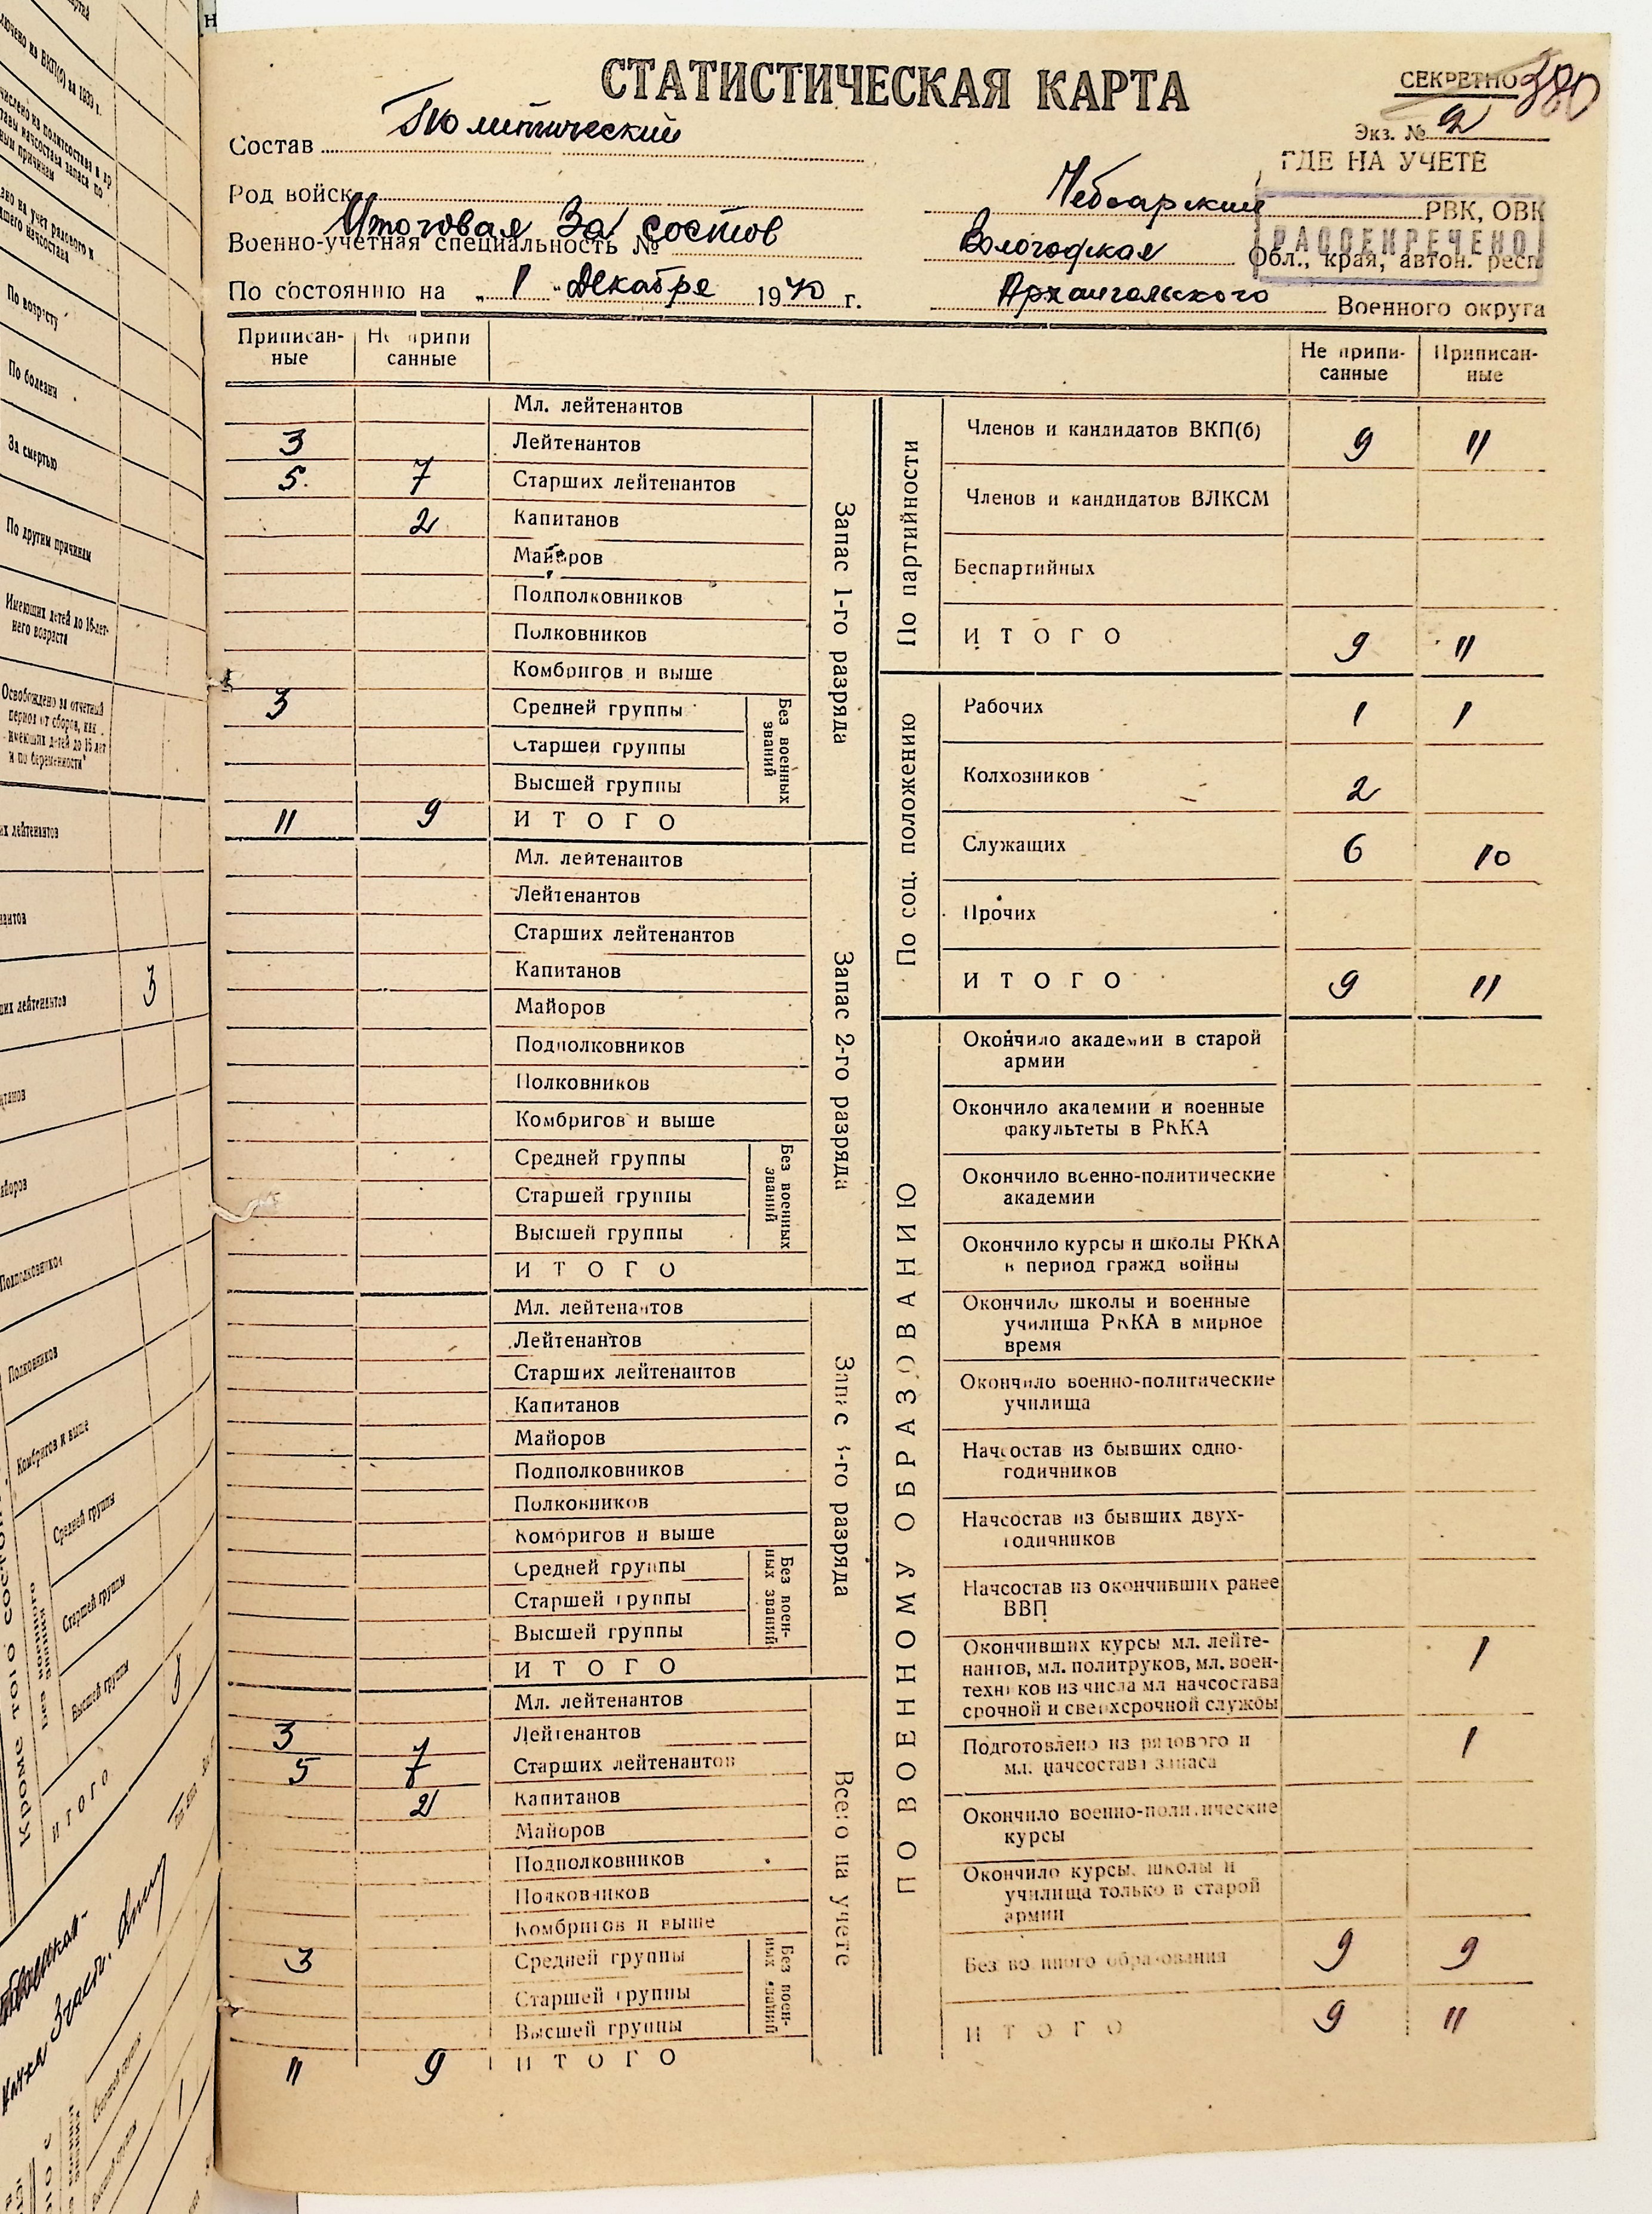 СТАТИСТИЧЕСКАЯ КАРТА
СЕКРЕТНО 380
Экз. № 2
Состав Политический
ГДЕ НА УЧЕТЕ
Род войск
Чебсарский РВК, ОВК
РАССЕКРЕЧЕНО
Итоговая За состав
Военно-учетная специальность №
Вологодская Обл., края, автон. респ.
По состоянию на „ 1 " Декабре 1940 г.
Архангельского Военного округа
Приписан-ные Не припи санные
Не припи-санные Приписан-ные
Запас 1-го разряда
Мл. лейтенантов
3 Лейтенантов
5 7 Старших лейтенантов
2 Капитанов
Майоров
Подполковников
Полковников
Комбригов и выше
Без военных званий
3 Средней группы
Старшей группы
Высшей группы
11 9 ИТОГО
Запас 2-го разряда
Мл. лейтенантов
Лейтенантов
Старших лейтенантов
Капитанов
Майоров
Подполковников
Полковников
Комбригов и выше
Без военных званий
Средней группы
Старшей группы
Высшей группы
ИТОГО
Запас 3-го разряда
Мл. лейтенантов
Лейтенантов
Старших лейтенантов
Капитанов
Майоров
Подполковников
Полковников
Комбригов и выше
Без воен-ных званий
Средней группы
Старшей группы
Высшей группы
ИТОГО
Всего на учете
Мл. лейтенантов
3 Лейтенантов
5 7 Старших лейтенантов
2 Капитанов
Майоров
Подполковников
Полковников
Комбригов и выше
Без воен-ных званий
3 Средней группы
Старшей группы
Высшей группы
11 9 ИТОГО
По партийности
Членов и кандидатов ВКП(б) 9 11
Членов и кандидатов ВЛКСМ
Беспартийных
ИТОГО 9 11
По соц. положению
Рабочих 1 1
Колхозников 2
Служащих 6 10
Прочих
ИТОГО 9 11
ПО ВОЕННОМУ ОБРАЗОВАНИЮ
Окончило академии в старой
армии
Окончило академии и военные
факультеты в РККА
Окончило военно-политические
академии
Окончило курсы и школы РККА
в период гражд войны
Окончило школы и военные
училища РККА в мирное
время
Окончило военно-политические
училища
Начсостав из бывших одно-
годичников
Начсостав из бывших двух-
годичников
Начсостав из окончивших ранее
ВВП
Окончивших курсы мл. лейте-
нантов, мл. политруков, мл. воен-
техников из числа мл начсостава
срочной и сверхсрочной службы 1
Подготовлено из рядового и
мл. начсостава запаса 1
Окончило военно-политические
курсы
Окончило курсы, школы и
училища только в старой
армии
Без военного образования 9 9
ИТОГО 9 11
По возрасту
По болезни
За смертью
По другим причинам
Имеющих детей до 16-лет-
него возраста
Освобождено за отчетный
период от сборов, как
имеющих детей до 16 лет
и по беременности
3
Подполковников
Полковников
Комбригов и выше
Средней группы
Старшей группы
Высшей группы
ИТОГО